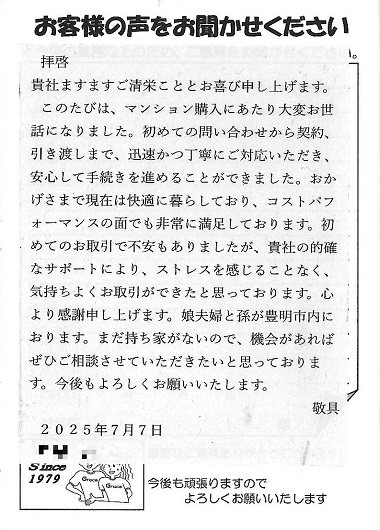 お客様の声をお聞かせください
拝啓
貴社ますますご清栄こととお喜び申し上げます。
このたびは、マンション購入にあたり大変お世
話になりました。初めての問い合わせから契約、
引き渡しまで、迅速かつ丁寧にご対応いただき、
安心して手続きを進めることができました。おか
げさまで現在は快適に暮らしており、コストパフ
ォーマンスの面でも非常に満足しております。初
めてのお取引で不安もありましたが、貴社の的確
なサポートにより、ストレスを感じることなく、
気持ちよくお取引ができたと思っております。心
より感謝申し上げます。娘夫婦と孫が豊明市内に
おります。まだ持ち家がないので、機会があれば
ぜひご相談させていただきたいと思っておりま
す。今後もよろしくお願いいたします。
敬具
２０２５年７月７日
Since
1979
Grace
Grace
今後も頑張りますので
よろしくお願いいたします